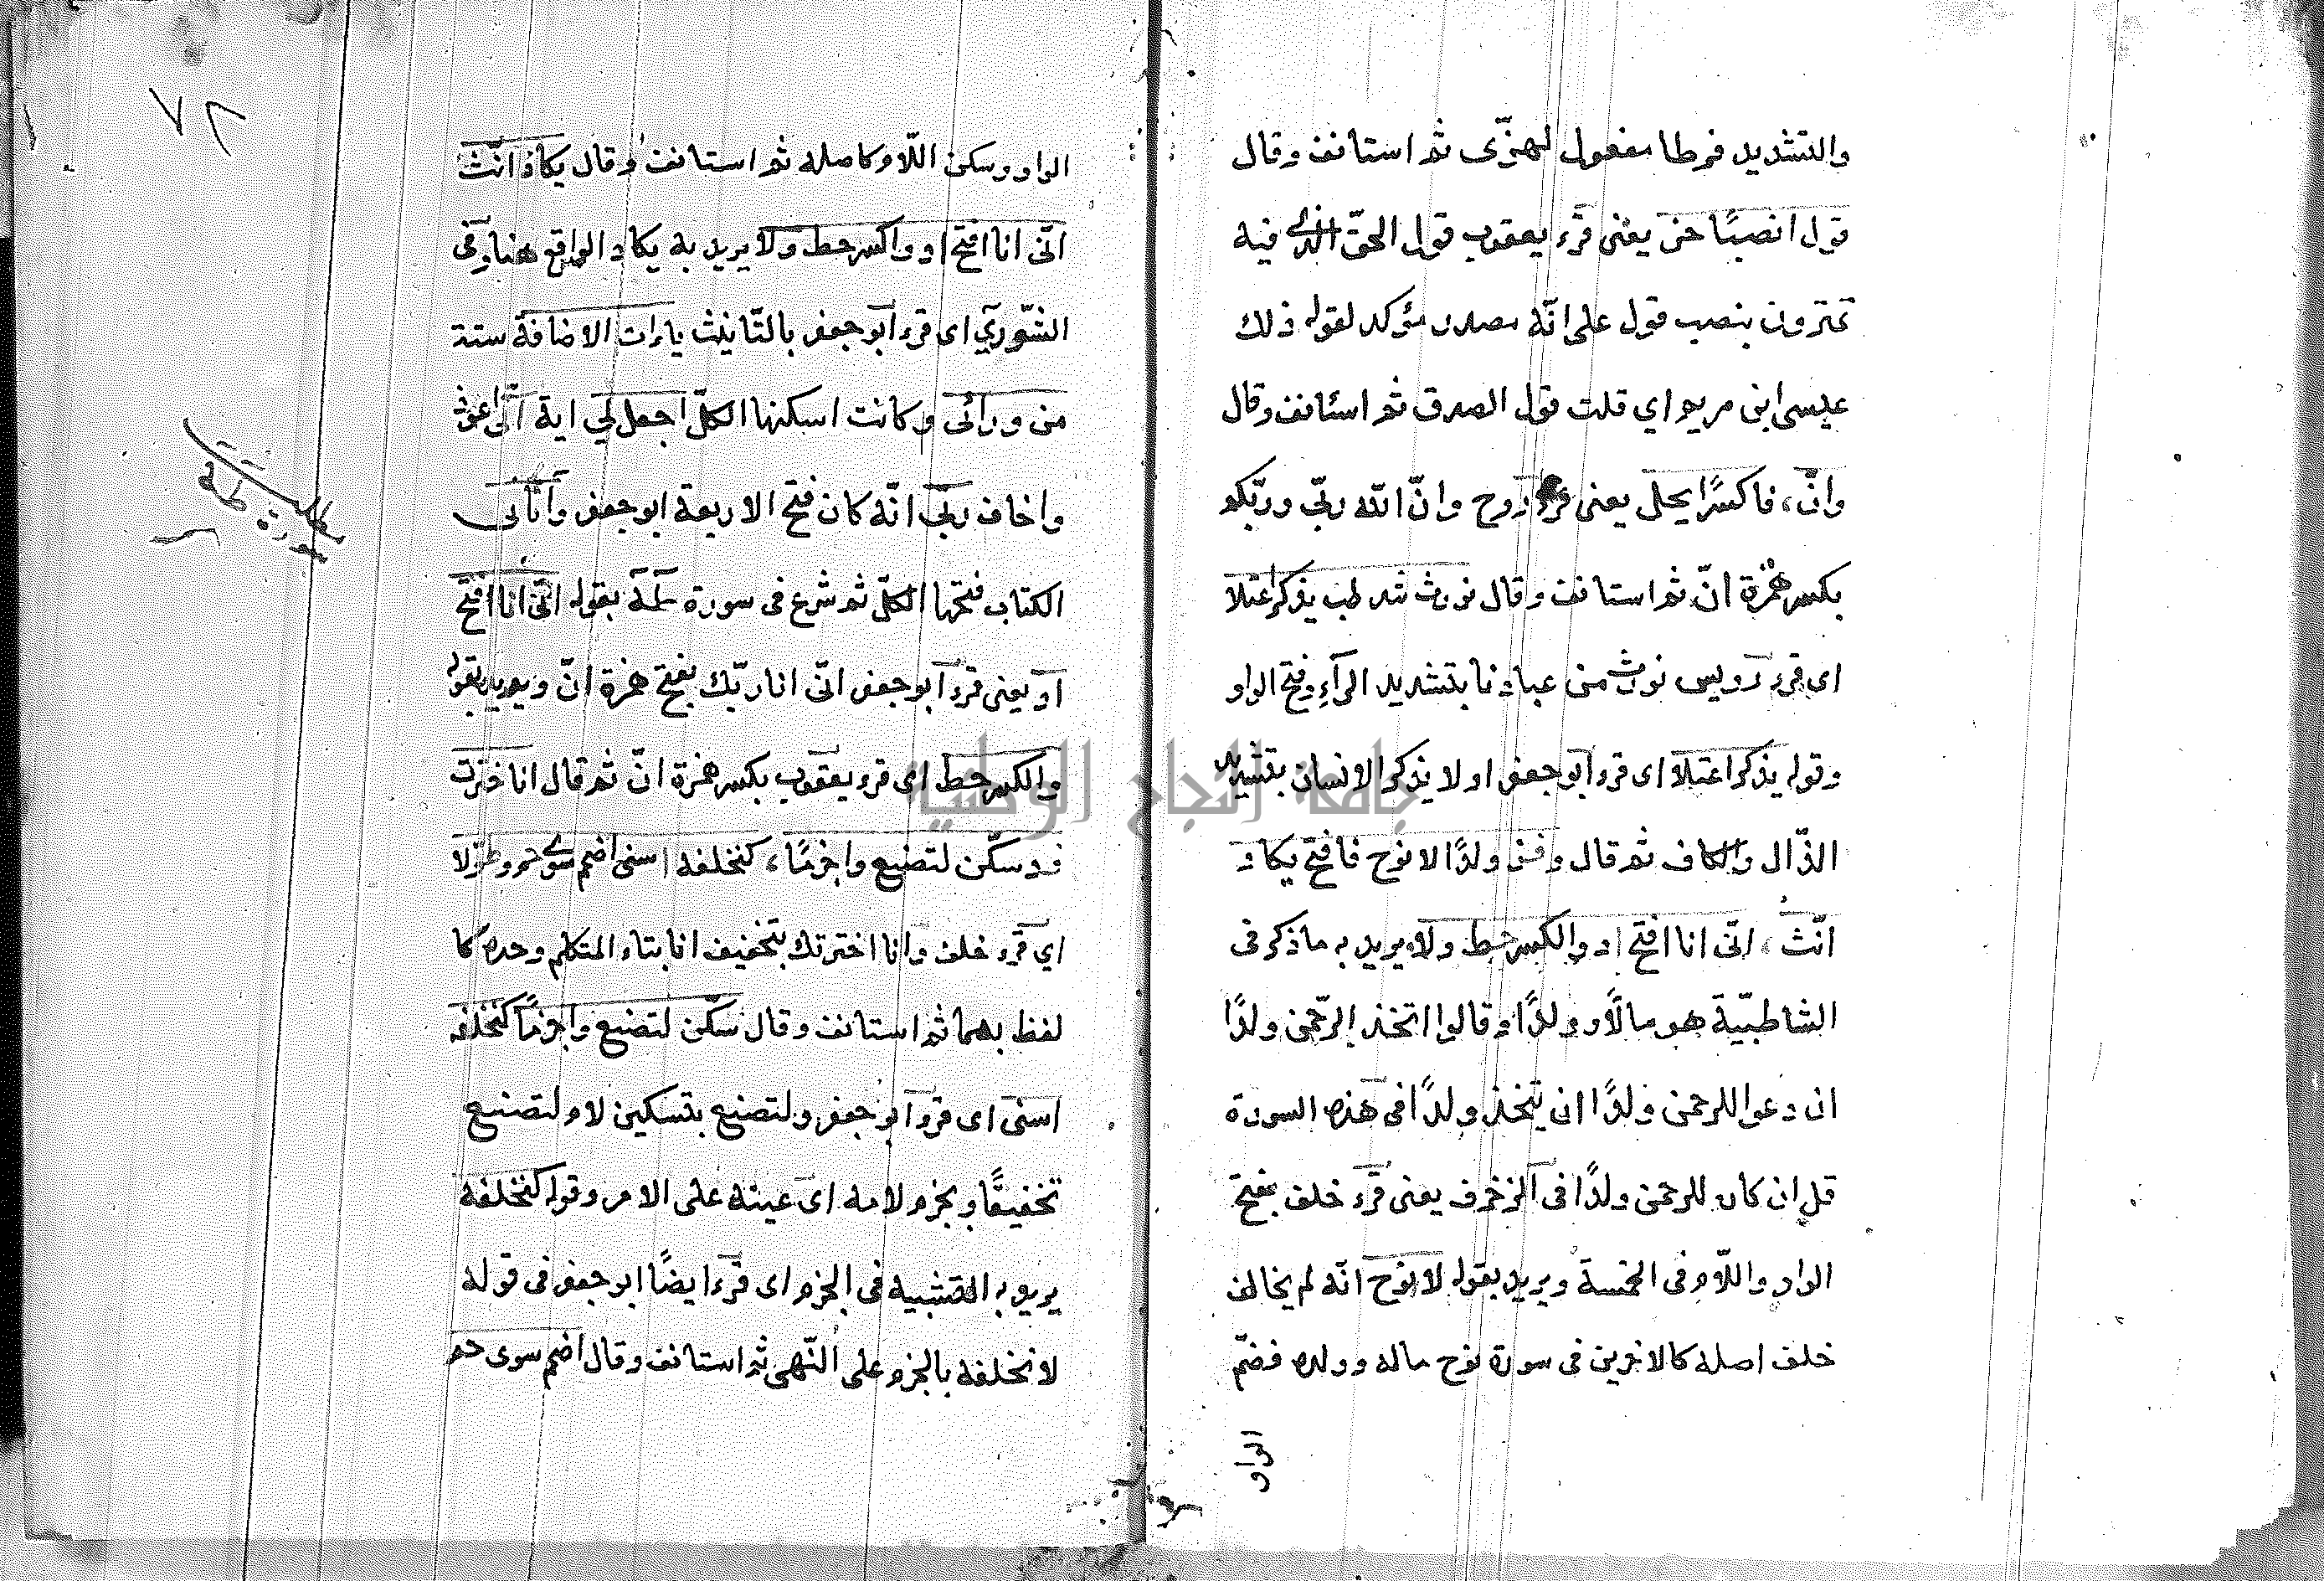 والتشديد فرطا مفعول لهزى ثم استانف وقال
قول انصبًا حز يعنى قرء يعقوب قول الحقّ الذى فيه
تمترون بنصب قول على انّه مصدر مؤكد لقوله ذلك
عيسى ابن مريم اي قلت قول الصدق ثم استانف وقال
وانّ، فاكسرًا يحلى يعنى قرء روح وانّ الله ربّي وربّكم
بكسر همزة انّ ثم استانف وقال نورث شد طب يذكر اعتلا
اى قرء رويس نورث من عبادنا بتشديد الرآء وفتح الواو
وقوله يذكر اعتلا اى قرء ابو جعفر اولا يذكر الانسان بتشديد
الذّال والكاف ثم قال وفز ولدًا لا نوح فافتح يكاد
انّث، انّى انا افتح اد والكسر حط ولا يريد به ما ذكر فى
الشاطبيّة هو مالًا وولدًا وقالوا اتخذ الرّحمن ولدًا
ان دعوا للرحمن ولدًا ان يتّخذ ولدًا فى هذه السورة
قل ان كان للرحمن ولدًا فى الزخرف يعنى قرء خلف بفتح
الواو واللام فى الخمسة ويريد بقوله لا نوح انّه لم يخالف
خلف اصله كالاخرين فى سورة نوح ماله وولده فضمّ
الواو
٧٨
الواو وسكن اللّام كاصله ثم استانف وقال يكاد انّث
انّى انا افتح اد واكسر حط ولا يريد به يكاد الواقع هنا وفى
الشّورى اى قرء ابو جعفر بالتّانيث ياءات الاضافة ستة
من ورائى وكانت اسكنها الكلّ اجعل لي اية انّى اعوذ
واخاف ربّي انّه كان فتح الاربعة ابو جعفر وآتانى
الكتاب فتحها الكلّ ثم شرع فى سورة طه بقوله انّى انا افتح
اد يعنى قرء ابو جعفر انّى انا ربّك بفتح همزة انّ ويريد بقوله
والكسر حط اى قرء يعقوب بكسر همزة انّ ثم قال انا اخترت
فد وسكّن لتصنع واجزمًا، كنخلفه اسنى اضمم سوى حم وطولا
اي قرء خلف وانا اخترتك بتخفيف انا بتاء المتكلم وحده كا
لفظ بهما ثم استانف وقال سكّن لتصنع واجزمًا كنخلفه
اسنى اى قرء ابو جعفر ولتصنع بتسكين لام لتصنع
تخفيفًا وبجزم لامه اى عينه على الامر وقوله كنخلفه
يريد به التشبيه فى الجزم اى قرء ايضًا ابو جعفر فى قوله
لا نخلفه بالجزم على النّهى ثم استانف وقال اضمم سوى حم